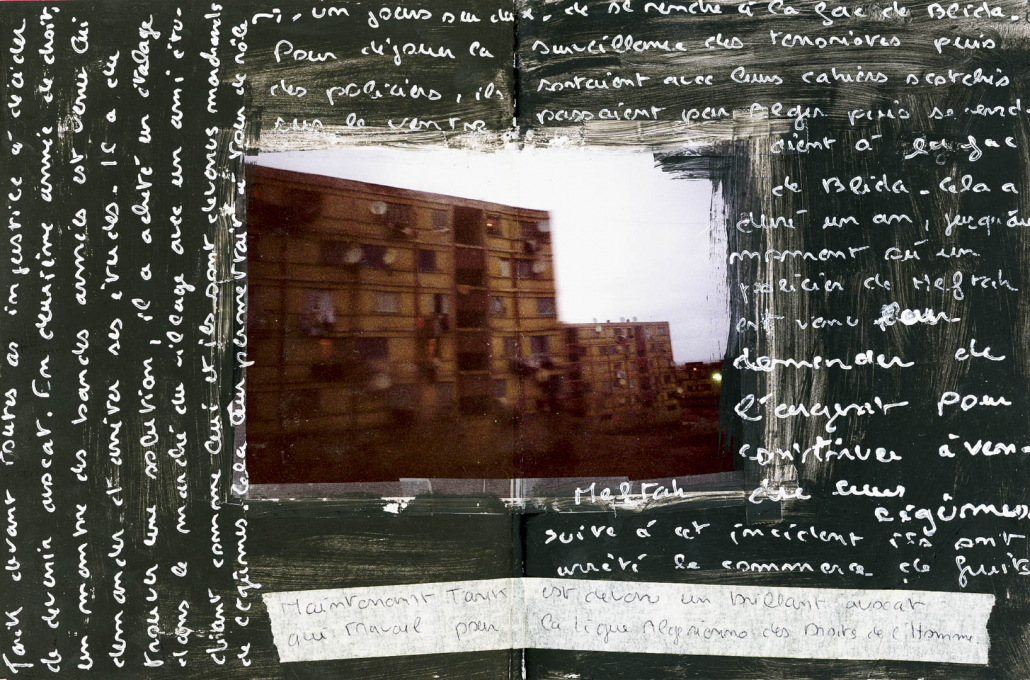 Tarik devant toutes as injustice à décider
de devenir avocat. En deuxième année de droit
un membre des bandes armées est venu lui
demander d'arrêter ses études. Il a du
trouver une solution, il a acheté un étalage
dans le marché du village avec un ami étu-
diant comme lui et ils sont devenus marchands
de légumes. Cela leur permettrait a tour de rôle
un jour sur deux, de se rendre à la fac de Blida.
Pour déjouer la surveillance des terroristes puis
des policiers, ils sortaient avec leurs cahiers scotchés
sur le ventre passaient par Alger puis se rend
aient à la fac
de Blida. Cela a
duré un an, jusqu'au
moment où un
policier de Meftah
est venu leur
demander de
l'argent pour
continuer à ven-
Meftah dre leurs
légumes
suive à cet incident ils ont
arrêté le commerce de fruits
Maintenant Tarik est devenu un brillant avocat
qui travail pour la ligue Algérienne des Droits de l'Homme